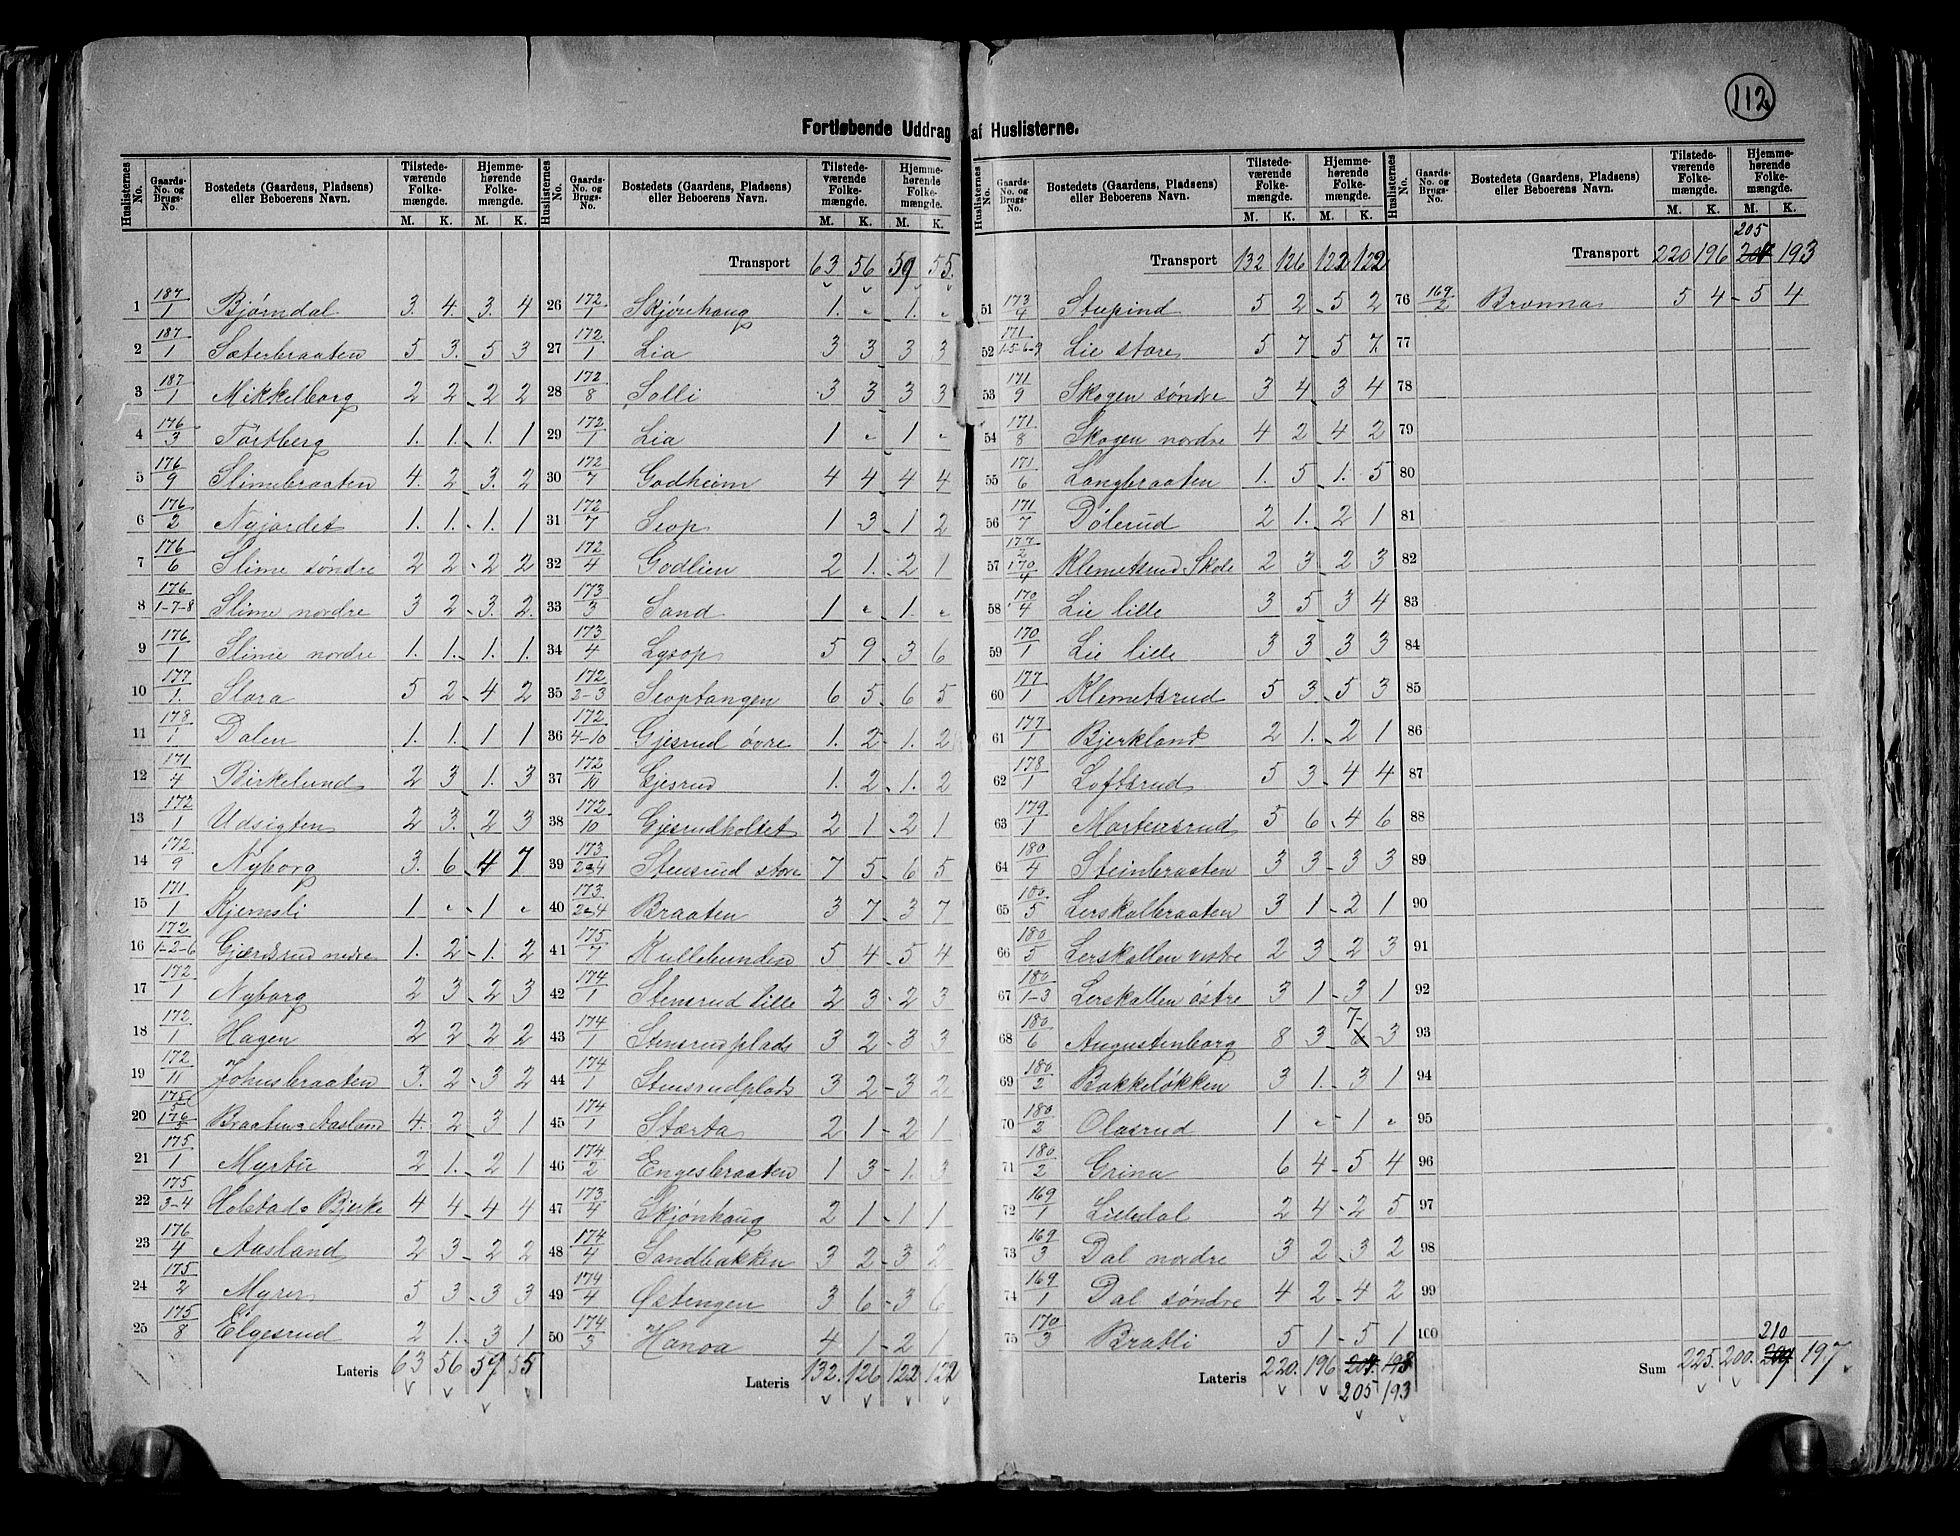 112
Fortløbende Uddrag af Huslisterne.
Huslisternes No. Gaards-No. og Brugs-No. Bostedets (Gaardens, Pladsens) eller Beboerens Navn. Tilstedeværende Folkemængde. M. K. Hjemmehørende Folkemængde. M. K.
1 187/1 Bjørndal 3. 4. 3. 4
2 187/1 Sæterbraaten 5 3. 5 3
3 187/1 Mikkelborg 2 2 2 2
4 176/3 Tortberg 1. 1. 1. 1
5 176/9 Slimebraaten 4. 2 3. 2
6 176/2 Nyjordet 1. 1. 1. 1
7 176/6 Slime søndre 2 2 2 2
8 176/1-7-8 Slime nordre 3 2 3. 2.
9 176/1 Slime nordre 1. 1. 1. 1.
10 177/1. Slora 5 2 4 2
11 178/1 Dalen 1. 1. 1 1
12 171/4 Birkelund 2 3 1. 3
13 172/1 Udsigten 2 3. 2 3
14 172/9 Nyborg 3. 6 4 7
15 171/1 Kjemsli 1 " 1 "
16 172/1-2-6 Gjærdsrud nedre 1. 2 1. 2
17 172/1 Nyborg 2 3 2 3
18 172/1 Hagen 2 2 2 2
19 172/11 Johnsbraaten 3. 2 3 2
20 175/5 176/5 Braaten Aasland 4. 2 3 1
21 175/1 Myrtue 2 1. 2 1
22 175/3-4 Holstad o Bjerke 4 4 4 4
23 176/4 Aasland 2 3 2 2
24 175/2 Myrer 5 3 3 3
25 175/8 Elgesrud 2 1. 3 1
Lateris 63 56 59 55
Huslisternes No. Gaards-No. og Brugs-No. Bostedets (Gaardens, Pladsens) eller Beboerens Navn. Tilstedeværende Folkemængde. M. K. Hjemmehørende Folkemængde. M. K.
Transport 63 56 59 55.
26 172/1 Skjønhaug 1. " 1. "
27 172/1 Lia 3 3 3 3
28 172/8 Solli 3 3 3 3
29 172/1 Lia 1 " 1 "
30 172/7 Godheim 4 4 4 4
31 172/7 Seop 1 3 1 2
32 172/4 Godlien 2 1. 2 1
33 173/3 Sand 1 " 1. "
34 173/4 Lysop 5 9 3 6
35 172/2-3 Seoptangen 6 5 6 5
36 172/4-10 Gjesrud øvre 1. 2 1. 2
37 172/10 Gjesrud 1. 2 1. 2
38 172/10 Gjesrudholtet 2 1 2 1
39 173/2a4 Stensrud store 7 5 6 5
40 173/2a4 Braaten 3 7 3 7
41 175/7 Kullebunden 5 4 5 4
42 174/1 Stensrud lille 2 3 2 3
43 174/1 Stensrudplads 3 2 3 3
44 174/1 Stensrudplads 3 2 3 2
45 174/1 Størta 2 1 2 1
46 174/2 Engesbraaten 1 3 1. 3
47 173/4 Skjønhaug 2 1 1 1
48 174/4 Sandbakken 3 2 3 2
49 174/4 Østengen 3 6 3 6
50 174/3 Hanoa 4 1 2 1
Lateris 132. 126 122 122
Huslisternes No. Gaards-No. og Brugs-No. Bostedets (Gaardens, Pladsens) eller Beboerens Navn. Tilstedeværende Folkemængde. M. K. Hjemmehørende Folkemængde. M. K.
Transport 132 126 122 122
51 173/4 Stupind 5 2 5 2
52 171/1-5-6-9 Lie store 5 7 5 7
53 171/9 Skogen søndre 3 4 3 4
54 171/8 Skogen nordre 4 2 4 2
55 171/6 Langbraaten 1. 5 1. 5
56 171/7 Dølerud 2 1. 2 1
57 177/2 170/4 Klemetsrud Skole 2 3 2 3
58 170/4 Lie lille 3 5 3 4
59 170/1 Lie lille 3 3 3 3
60 177/1 Klemetsrud 5 3 5 3
61 177/1 Bjerkland 2 1. 2 1
62 178/1 Loftsrud 5 3 4 4
63 179/1 Mortensrud 5 6 4 6
64 180/4 Steinbraaten 3 3 3 3
65 180/5 Lerskalbraaten 3 1 2 1
66 180/5 Lerskallen vestre 2 3 2 3
67 180/1-3 Lerskallen østre 3 1 3 1
68 180/6 Augustenborg 8 3 6 7 3
69 180/2 Bakkeløkken 3 1. 3 1
70 180/2 Olasrud 1 " 1 "
71 180/2 Grina 6 4 5 4
72 169/1 Liledal 2 4 2 5
73 169/3 Dal nordre 3 2 3 2
74 169/1 Dal søndre 4 2 4 2
75 170/3 Bratli 5 1 5 1
Lateris 220. 196
205 193
Huslisternes No. Gaards-No. og Brugs-No. Bostedets (Gaardens, Pladsens) eller Beboerens Navn. Tilstedeværende Folkemængde. M. K. Hjemmehørende Folkemængde. M. K.
Transport 220 196 205 193
76 169/2 Brenna 5 4 5 4
77
78
79
80
81
82
83
84
85
86
87
88
89
90
91
92
93
94
95
96
97
98
99
100
Sum 225. 200. 210 197